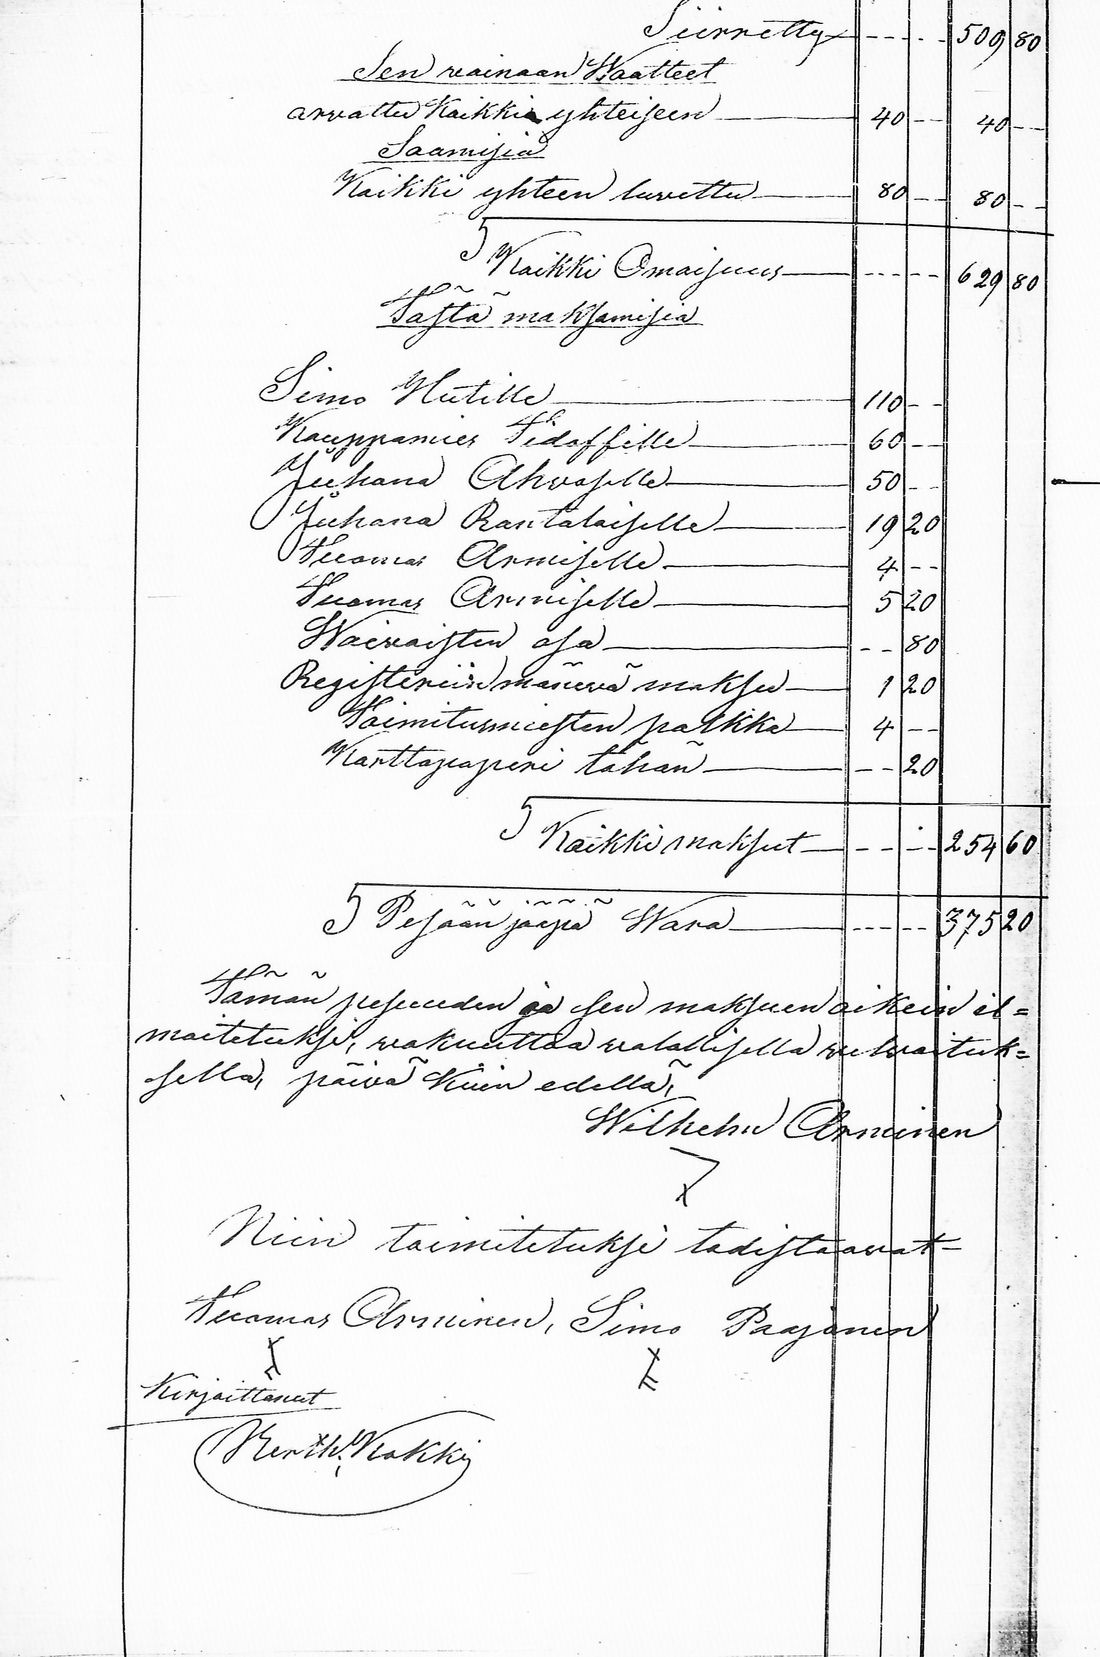 Siirretty - - - - 509 80
Sen vainaan Waatteet
arvattu Kaikki yhteiseen 40 - - 40 - -
Saamisia
Kaikki yhteen luvettu 80 - - 80 - -
Kaikki Omaisuus - - - - - 629 80
Tästä maksamisia
Simo Hutille 110 - -
Kauppamies Sidoffille 60 - -
Juhana Ahvoselle 50 - -
Juhana Rantalaiselle 19 20
Tuomas Armiselle 4 - -
Tuomas Armiselle 5 20
Waivaisten osa - - 80
Registeriin mänevä maksu 1 20
Toimitusmiesten palkka 4 - -
Karttapaperi tähän - - 20
Kaikki maksut - - - - 254 60
Pesään jääpä Wara - - - - - 375 20
Tämän pesuuden ja sen maksuen oikein il=
moitetuksi, vakuuttaa valallisella velvoituk=
sella, päivä Kuin edellä,
Wilhelm Arminen
Niin toimitetuksi todistaavat=
Tuomas Arminen, Simo Paajanen
Kirjoittanut
Kokki